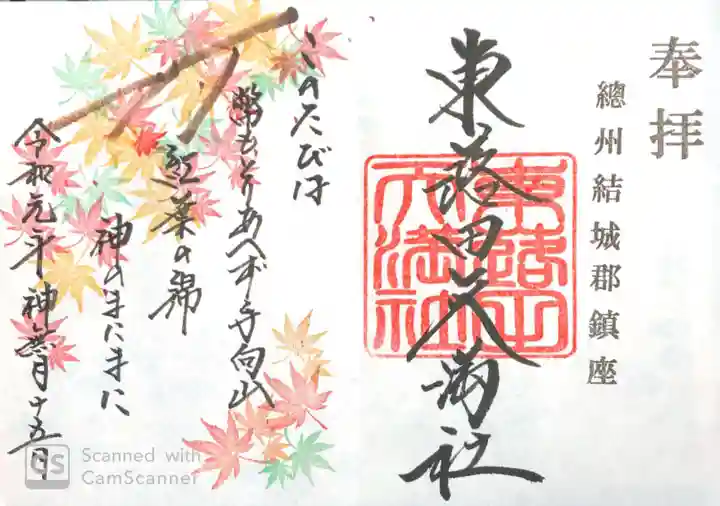 奉拝
總州結城郡鎮座
東蕗田天満社
東蕗田
天満社
このたびは
幣もとりあへず手向山
紅葉の錦
神のまにまに
令和元年神無月十五日
CS
Scanned with
CamScanner